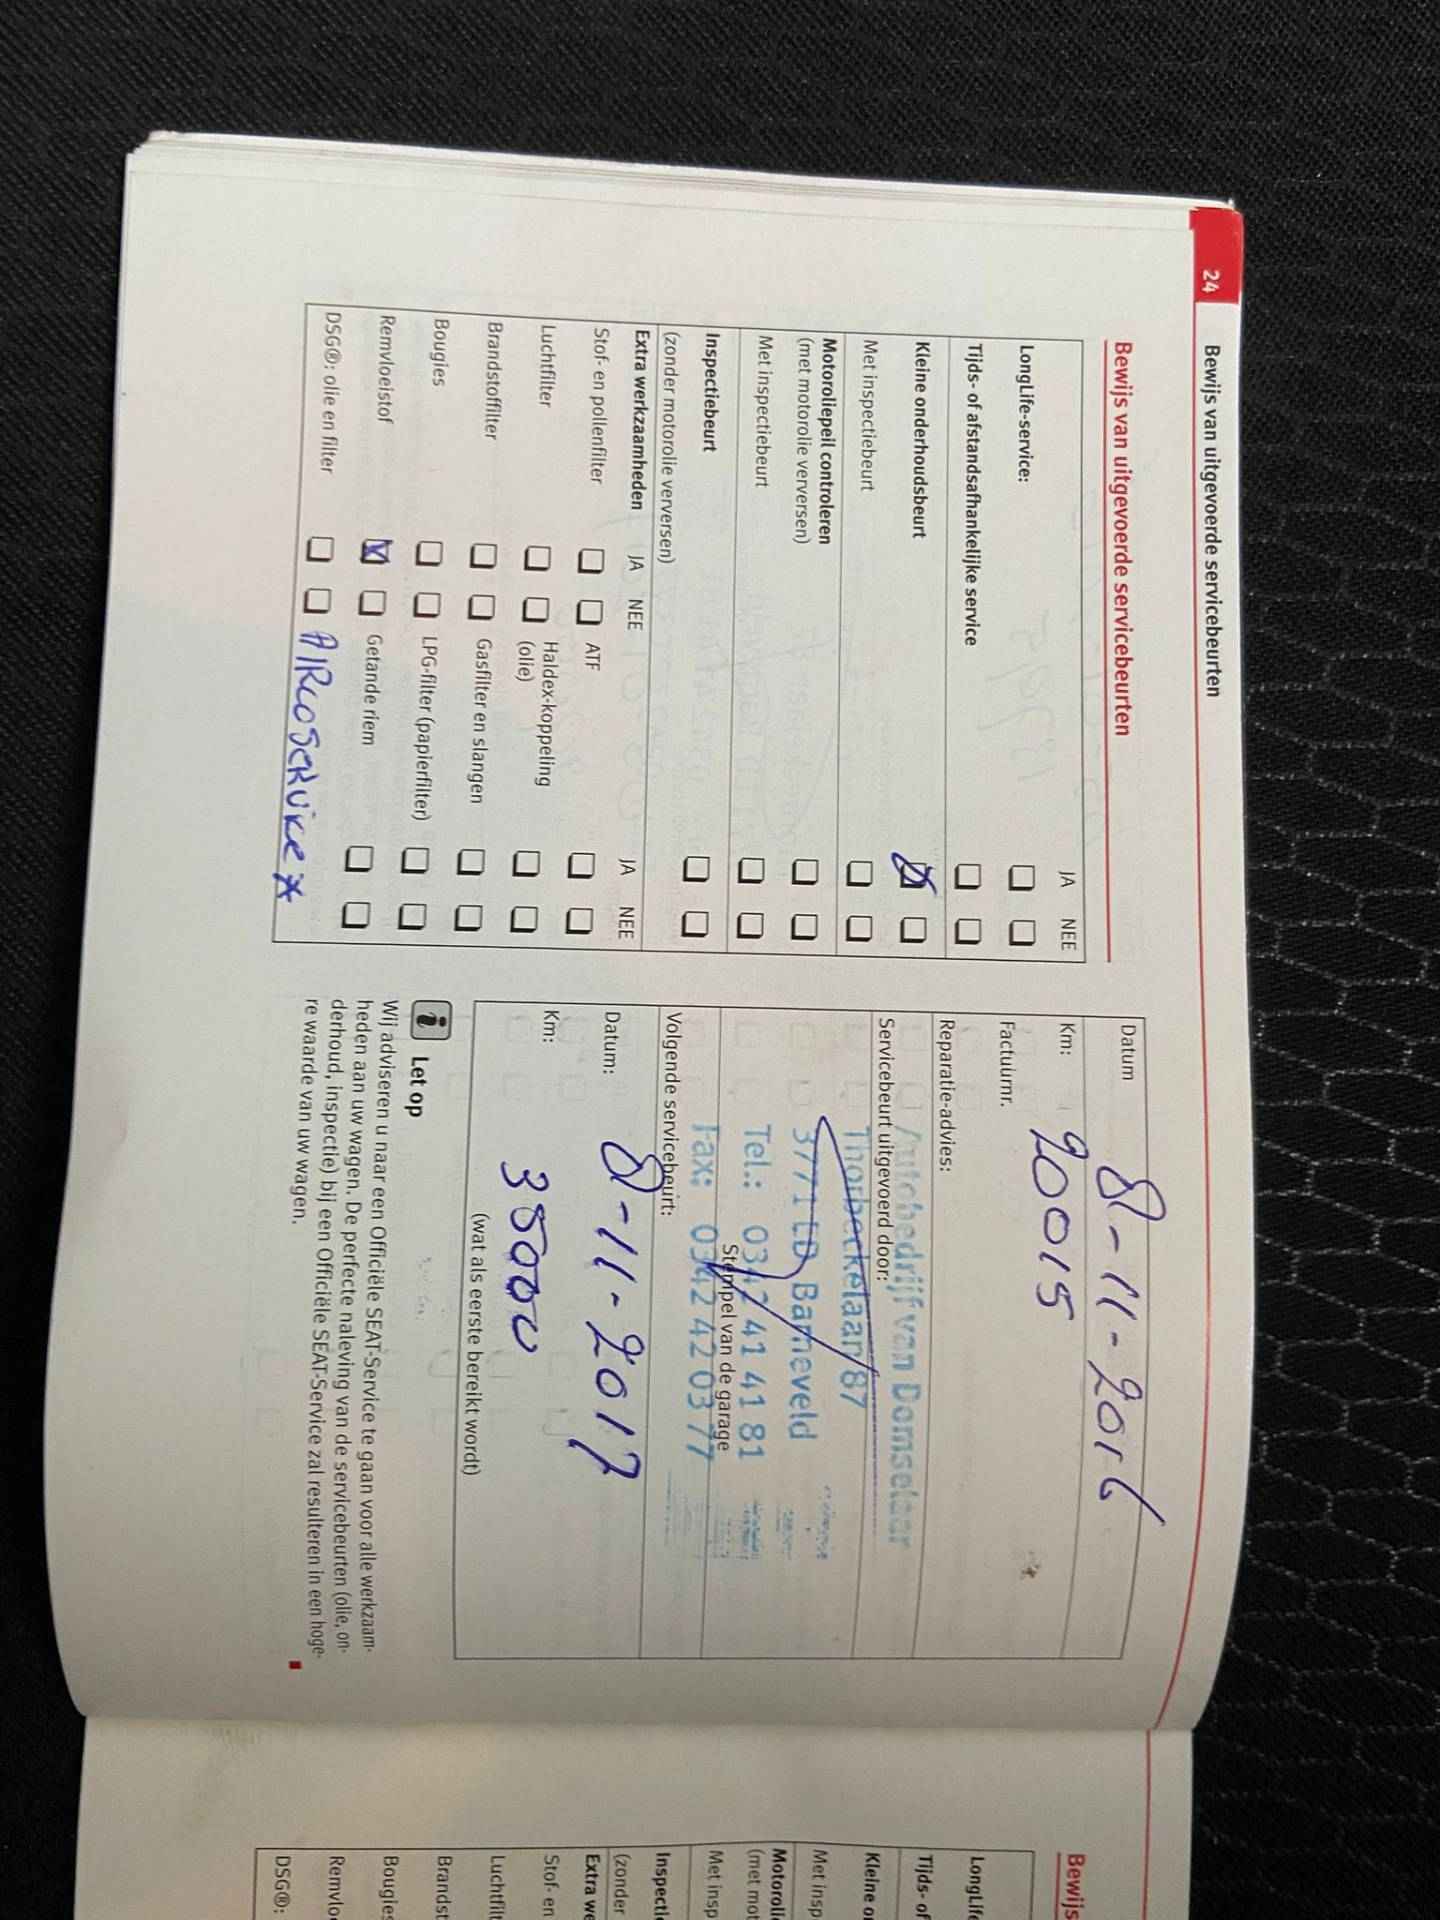 24 Bewijs van uitgevoerde servicebeurten
Bewijs van uitgevoerde servicebeurten
JA NEE
LongLife-service:
Tijds- of afstandsafhankelijke service
Kleine onderhoudsbeurt
Met inspectiebeurt
Motoroliepeil controleren
(met motorolie verversen)
Met inspectiebeurt
Inspectiebeurt
(zonder motorolie verversen)
Extra werkzaamheden JA NEE JA NEE
Stof- en pollenfilter ATF
Luchtfilter Haldex-koppeling
(olie)
Brandstoffilter Gasfilter en slangen
Bougies LPG-filter (papierfilter)
Remvloeistof Getande riem
DSG®: olie en filter AIRCOSERVICE *
Datum 8-11-2016
Km: 20015
Factuurnr.
Reparatie-advies:
Servicebeurt uitgevoerd door:
Autobedrijf van Domselaar
Thorbeckelaan 87
3771 ED Barneveld
Tel.: 0342 41 41 81
Stempel van de garage
Fax: 0342 42 03 77
Volgende servicebeurt:
Datum: 8-11-2017
Km: 35000
(wat als eerste bereikt wordt)
i Let op
Wij adviseren u naar een Officiële SEAT-Service te gaan voor alle werkzaam-
heden aan uw wagen. De perfecte naleving van de servicebeurten (olie, on-
derhoud, inspectie) bij een Officiële SEAT-Service zal resulteren in een hoge-
re waarde van uw wagen.
Bewijs
LongLife
Tijds- of
Kleine o
Met insp
Motoroli
(met mot
Met insp
Inspecti
(zonder
Extra we
Stof- en
Luchtfilt
Brandst
Bougies
Remvloe
DSG®: